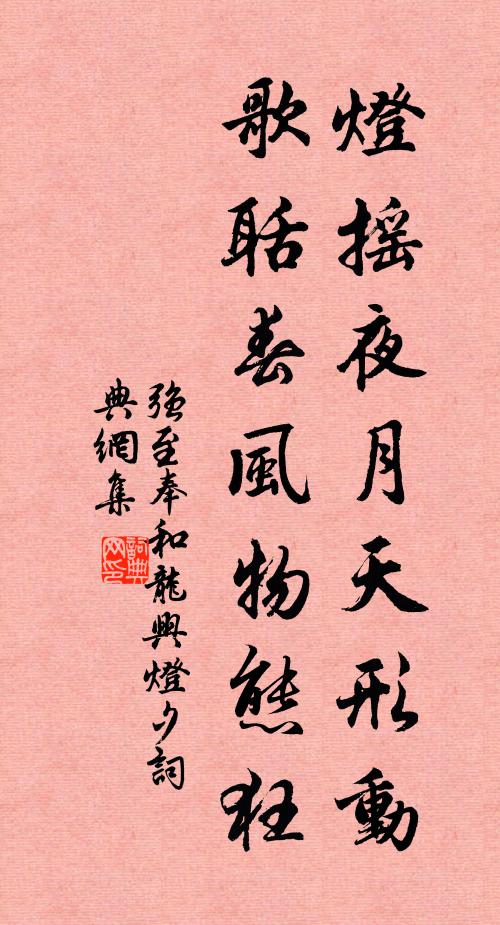 燈摇夜月天形動
歌聒春風物態狂
強至奉和龍興燈夕詞
典網集
詞典網印